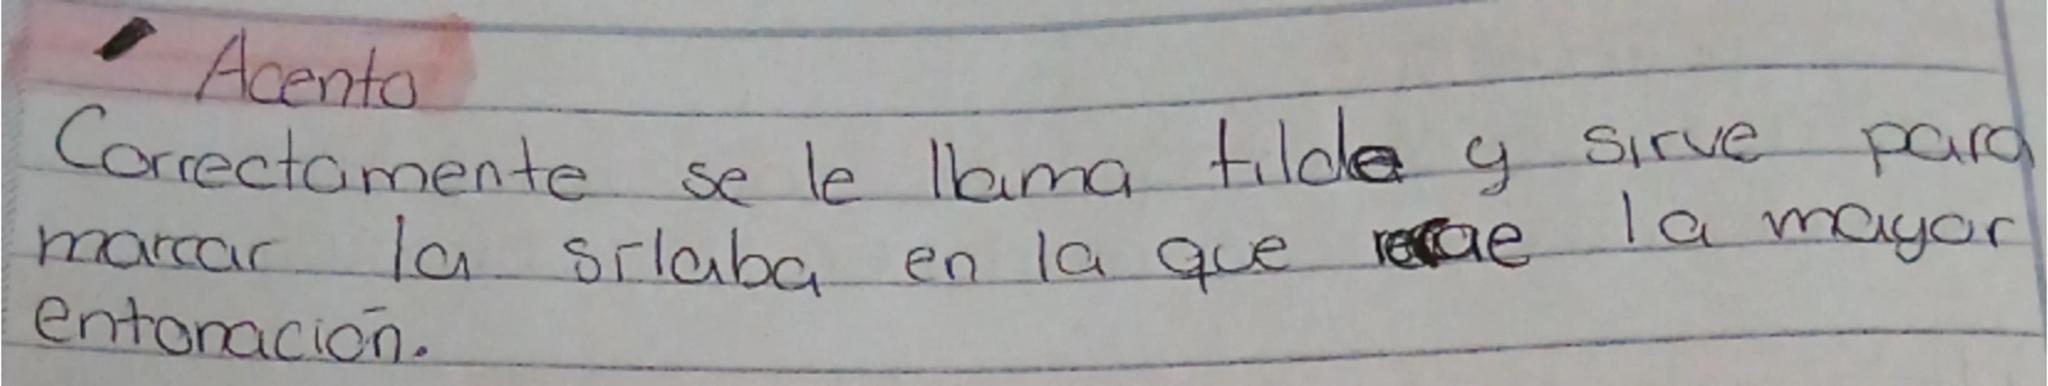 ´ Acento
Correctamente se le llama tilde y sirve para
marcar la sílaba en la que recae la mayor
entonación.